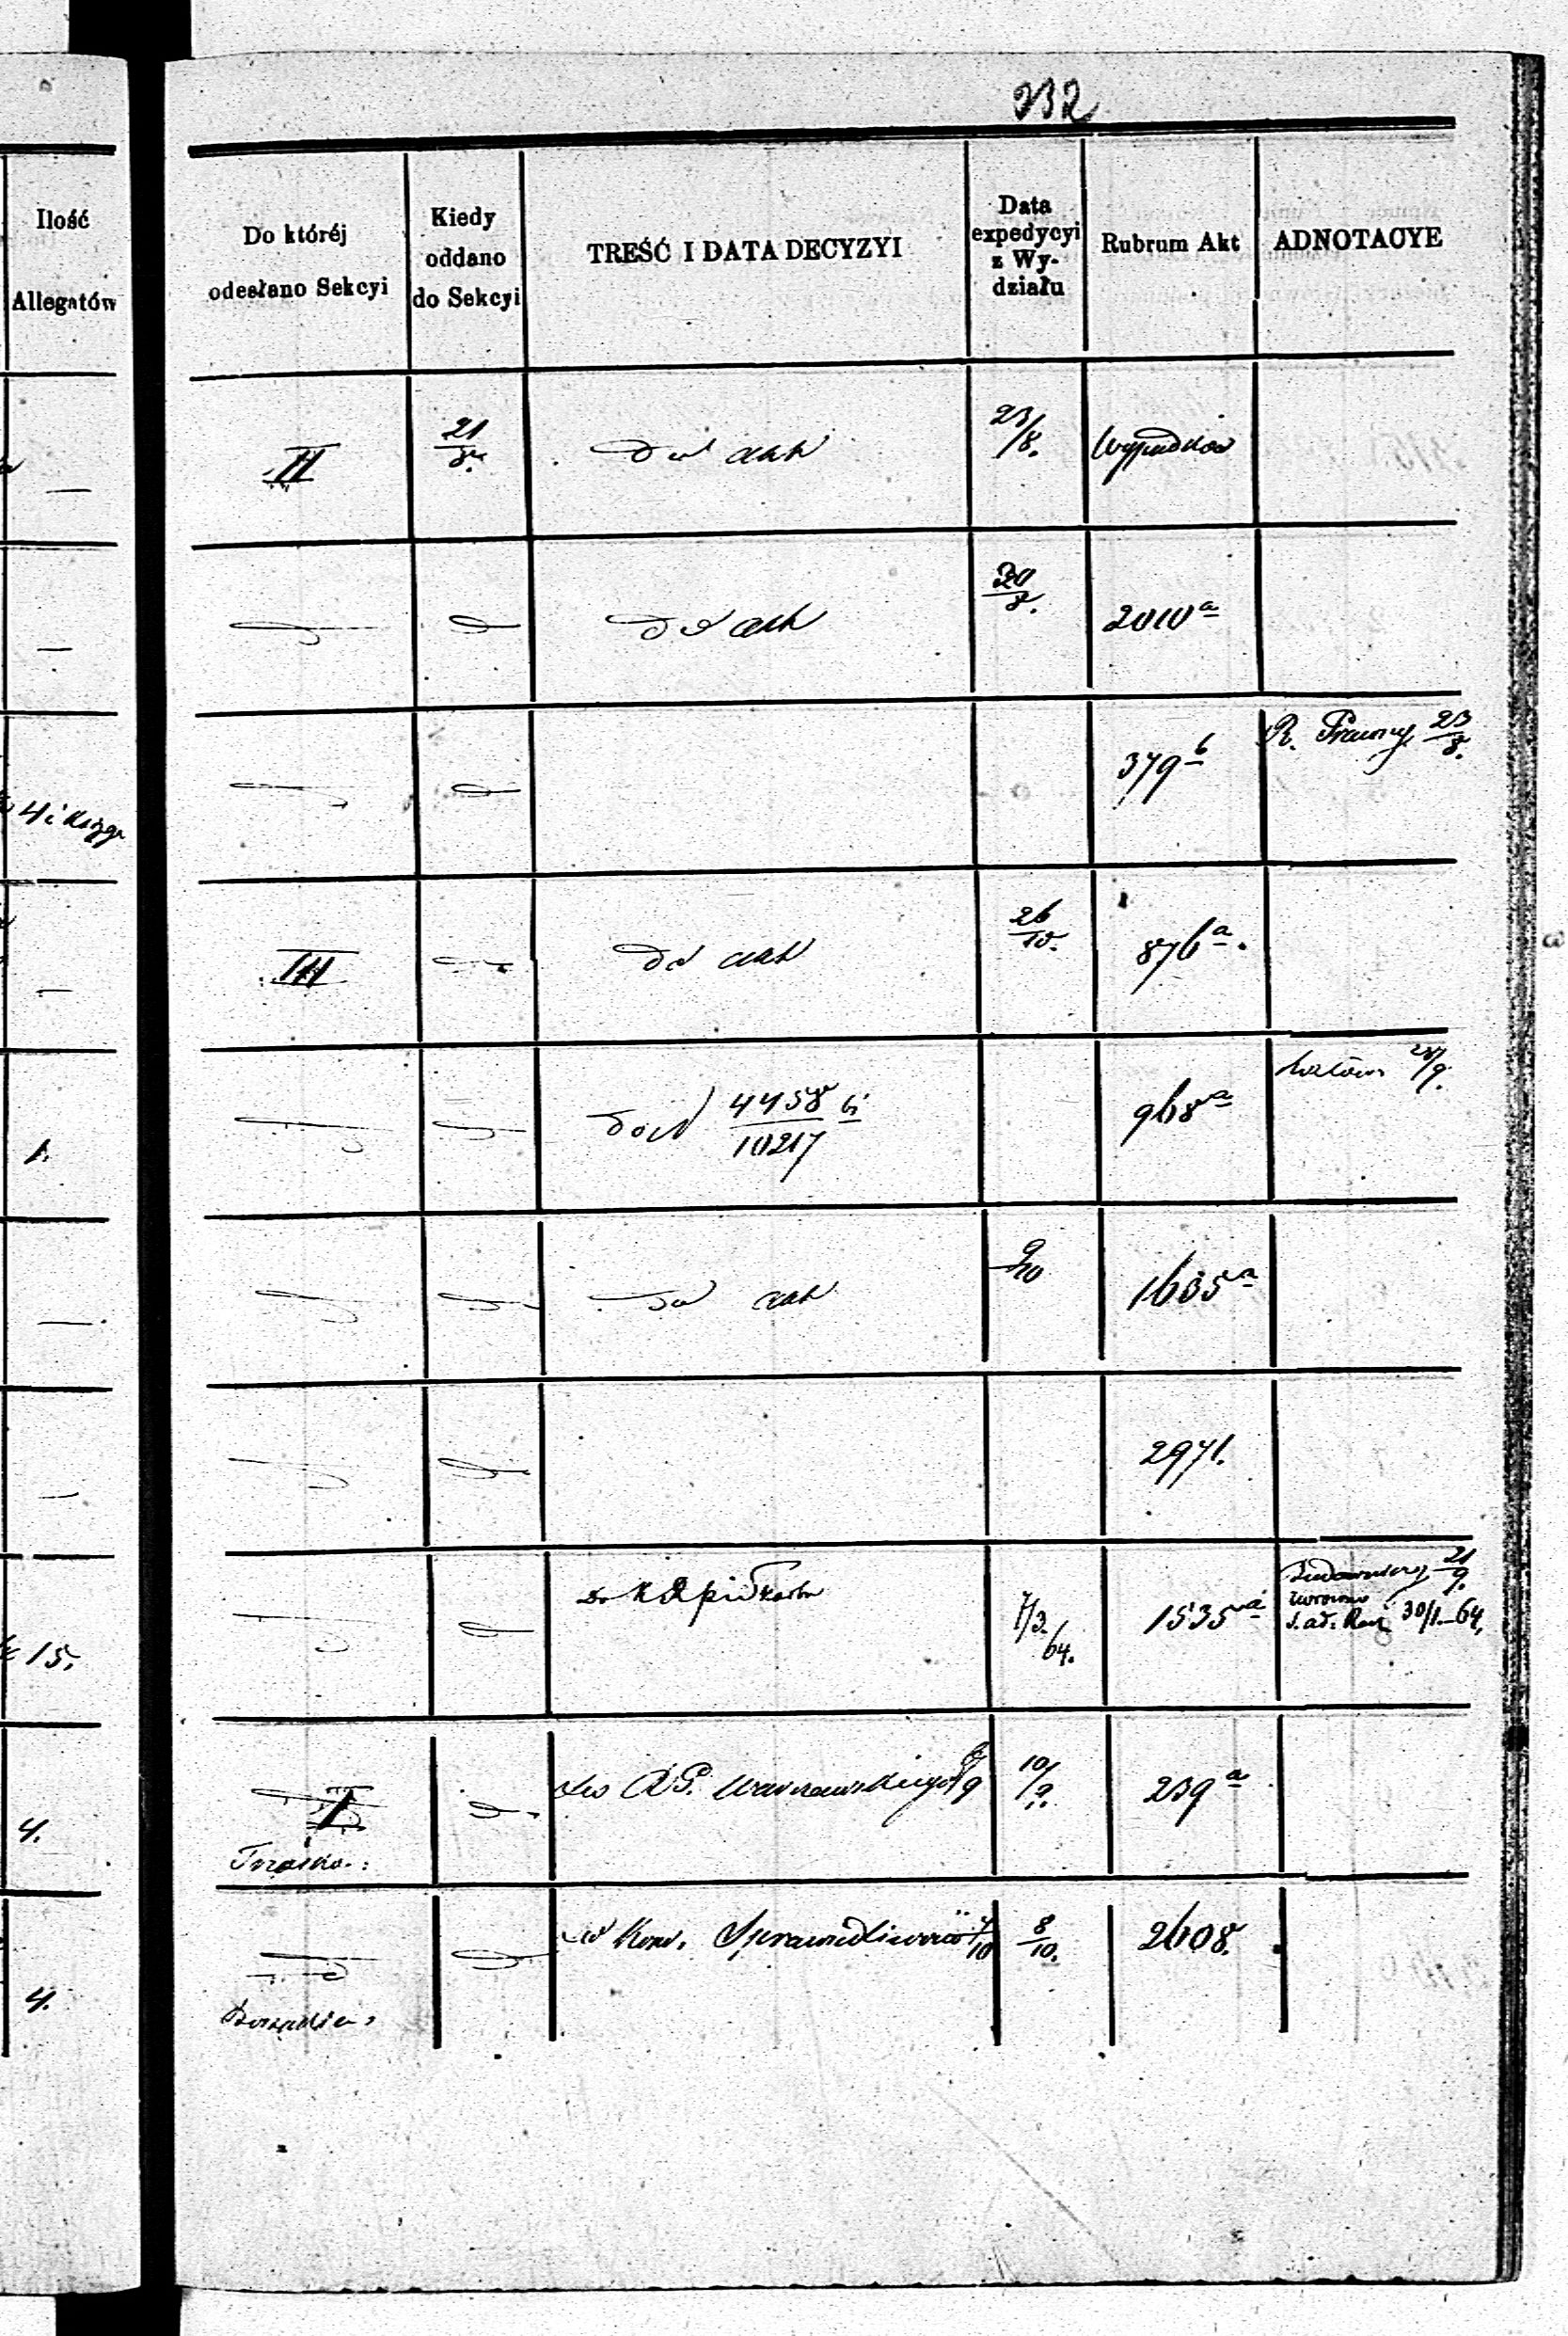 232
Ilość
Allegatów
Do któréj
odesłano Sekcyi
Kiedy
oddano
do Sekcyi
TREŚĆ I DATA DECYZYI
Data
expedycyi
z Wy-
działu
Rubrum Akt
ADNOTACYE
—
II
21/8.
do akt
23/8.
Wypadków
—
do akt
20/8.
2010 a
4 i księga
379 b
R. Prawny 23/8.
—
III
do akt
26/10.
876 a.
1.
do N 4458/10217
968 a
—
do akt
9/10
1635 a
—
2971.
15.
7/3. 64.
1535 a
21/9.
30/1.–64.
4.
I
do R. G. Warszawskiego 9
10/9.
239 a
4.
do Kom. Sprawiedliwości 7/10
8/10.
2608.